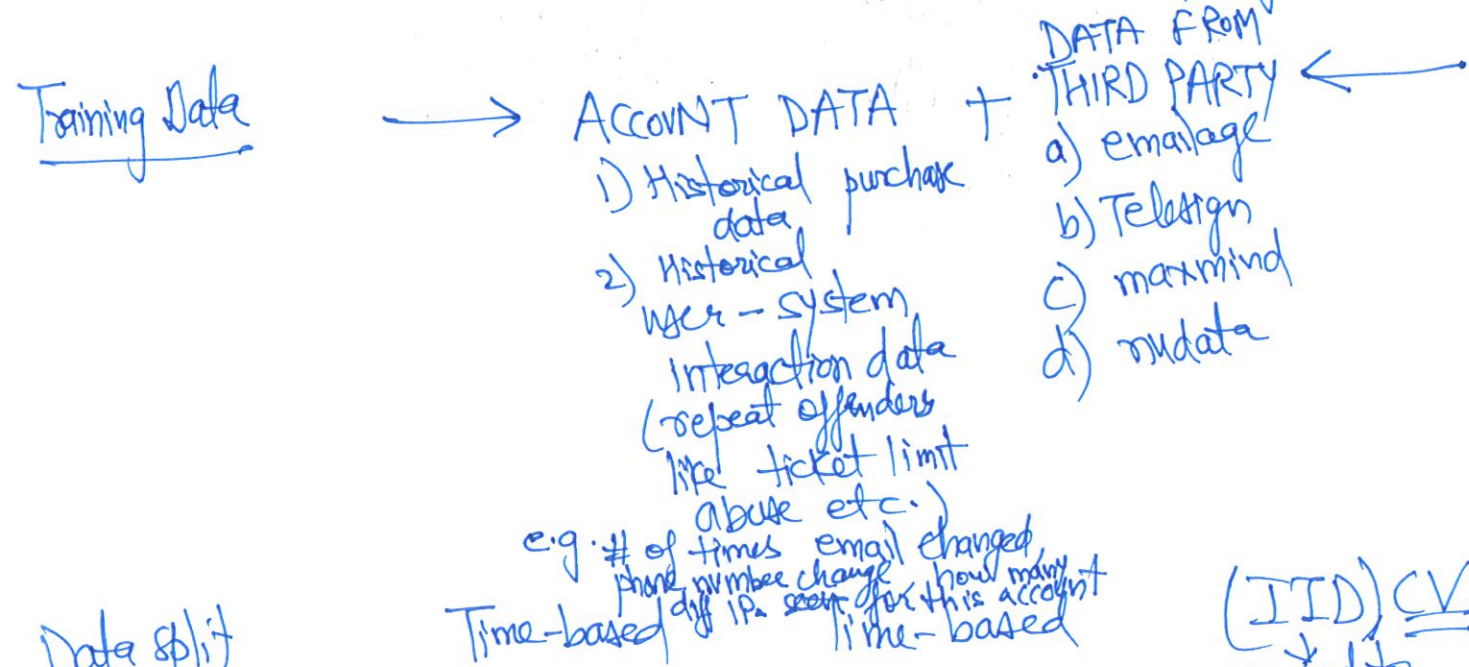 Training Data → ACCOUNT DATA + DATA FROM
THIRD PARTY ←
1) Historical purchase
data
2) Historical
user - system
interaction data
(repeat offenders
like ticket limit
abuse etc.)
e.g. # of times email changed,
phone number change, how many
diff IPs seen for this account
a) emailage
b) Telesign
c) maxmind
d) nudata
Data split
Time-based
Time-based
(IID) CV